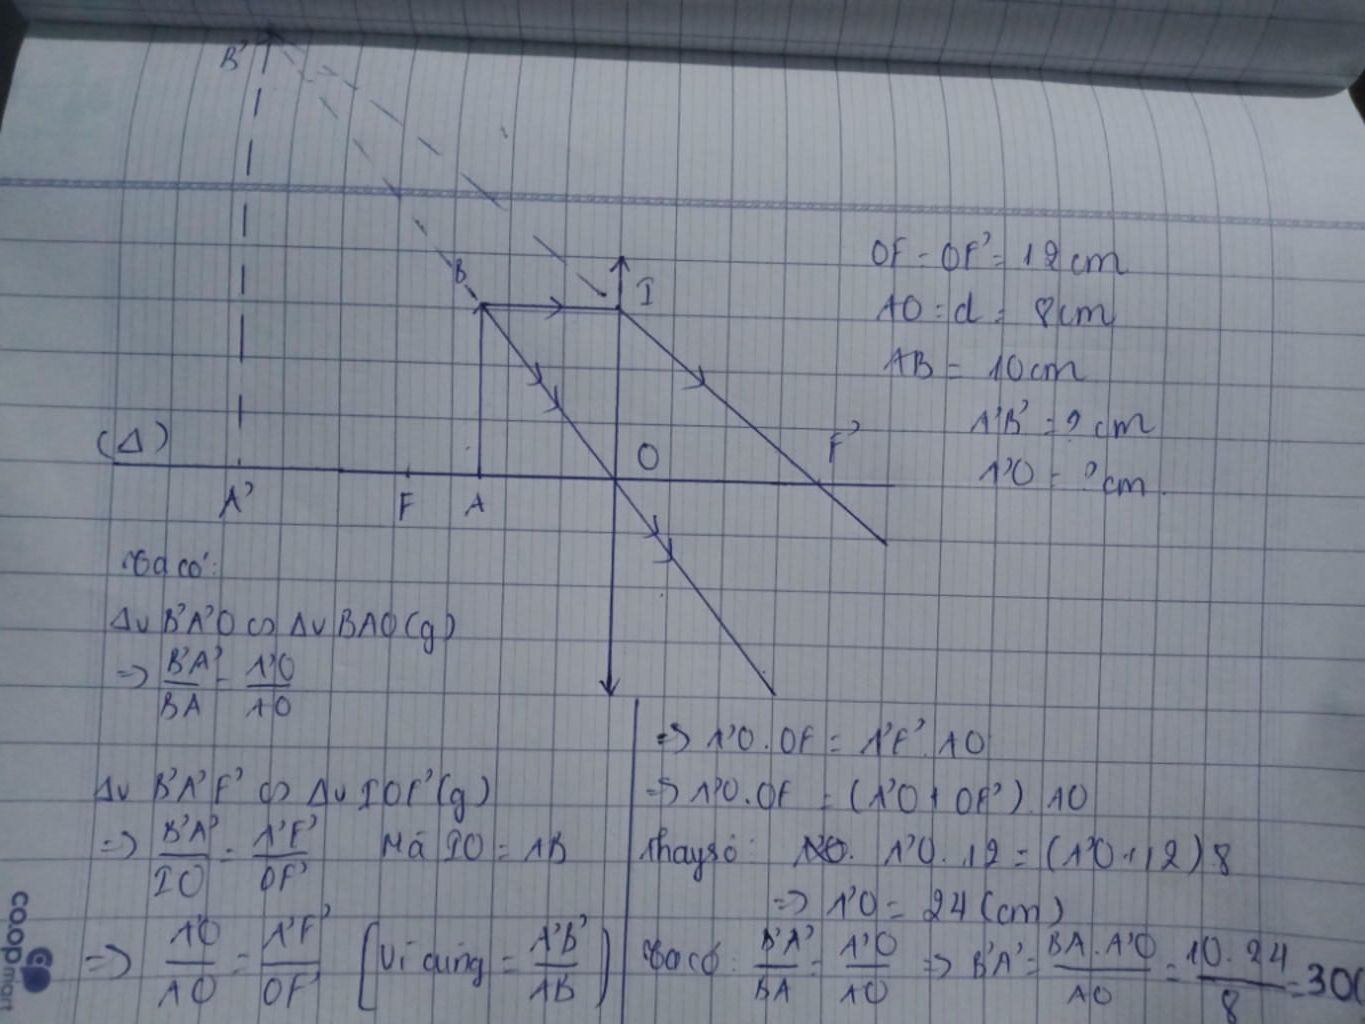 B'
B
I
OF = OF' = 12 cm
AO = d = 8cm
AB = 10cm
A'B' = ? cm
A'O = ? cm
(Δ)
A'
F
A
O
F'
Ta có:
Δv B'A'O ∽ Δv BAO (g)
=> B'A'/BA = A'O/AO
Δv B'A'F' ∽ Δv IOF' (g)
=> B'A'/IO = A'F'/OF' Mà IO = AB
=> A'O/AO = A'F'/OF' [Vì cùng = A'B'/AB)
=> A'O . OF = A'F' . AO
=> A'O . OF = (A'O + OF') . AO
Thay số: A'O . 12 = (A'O + 12) 8
=> A'O = 24 (cm)
Ta có: B'A'/BA = A'O/AO => B'A' = BA . A'O/AO = 10 . 24/8 = 30
co.opmart